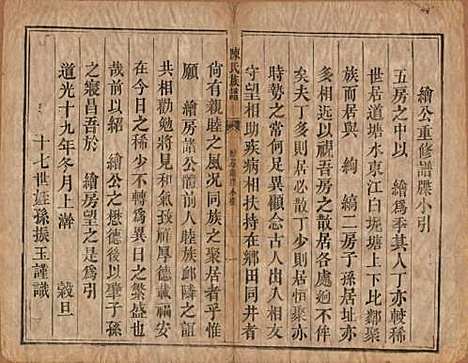 繪公重修譜牒小引
五房之中以　繪為季其人丁亦較稀
世居道塘水東江白坭塘上下比鄰聚
族而居與　絢　縞二房子孫居址亦
遠近迥以視吾房之散居各處
矣夫丁多則居必散丁少則居必聚
時勢之常何足異顧念古人出入相友
守望相助疾病相扶持在鄉田同井者
陳氏族譜
尚有親睦之風况同族之聚居者乎惟
願　繪房公等上念　前人睦族邱鄰之誼
共相勸勉將見和氣致祥厚德載福安
在今日之稀少不轉為異日之繁盛也
哉前以紹　繪公之懋德後以肇子孫
之寖昌吾於　繪房望之是為引
道光十九年冬月上澣　榖旦
十七世姪孫振玉謹識